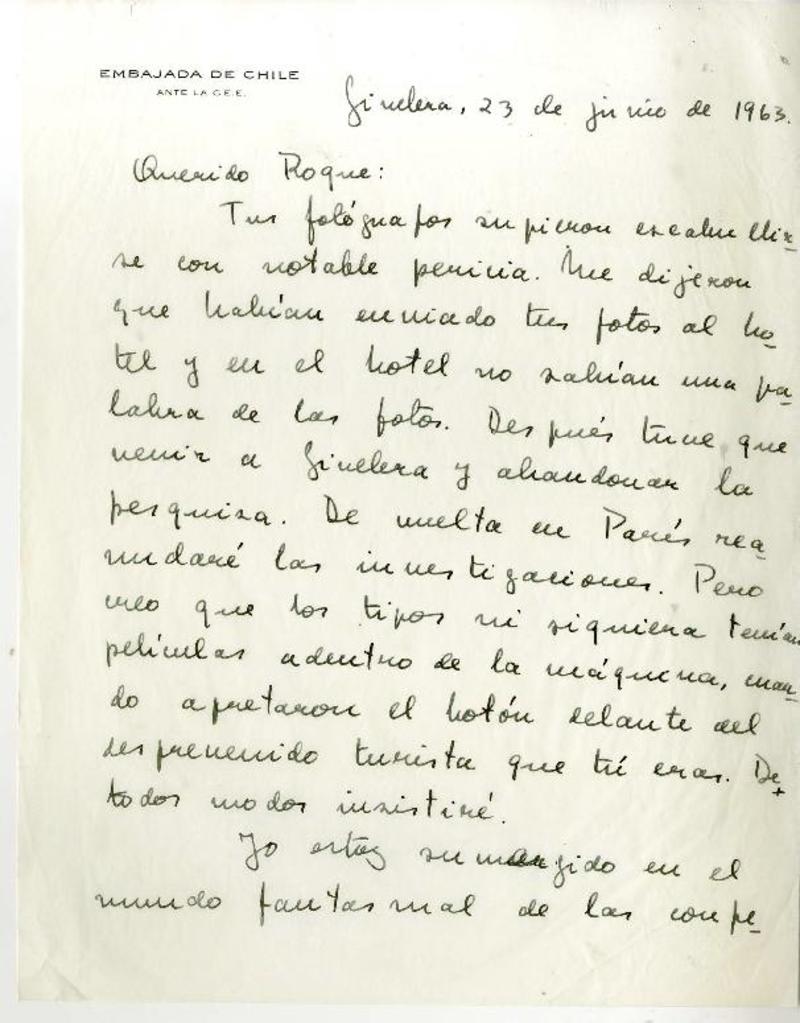 EMBAJADA DE CHILE
ANTE LA C.E.E.
Ginebra, 23 de junio de 1963.
Querido Roque:
Tus fotógrafos supieron escabullir-
se con notable pericia. Me dijeron
que habían enviado tus fotos al ho-
tel y en el hotel no sabían una pa-
labra de las fotos. Después tuve que
venir a Ginebra y abandonar la
pesquiza. De vuelta en París rea-
nudaré las investigaciones. Pero
creo que los tipos ni siquiera tenían
películas adentro de la máquina, cuan-
do apretaron el botón delante del
desprevenido turista que tú eras. De
todos modos insistiré.
Yo estoy sumergido en el
mundo fantasmal de las confe-